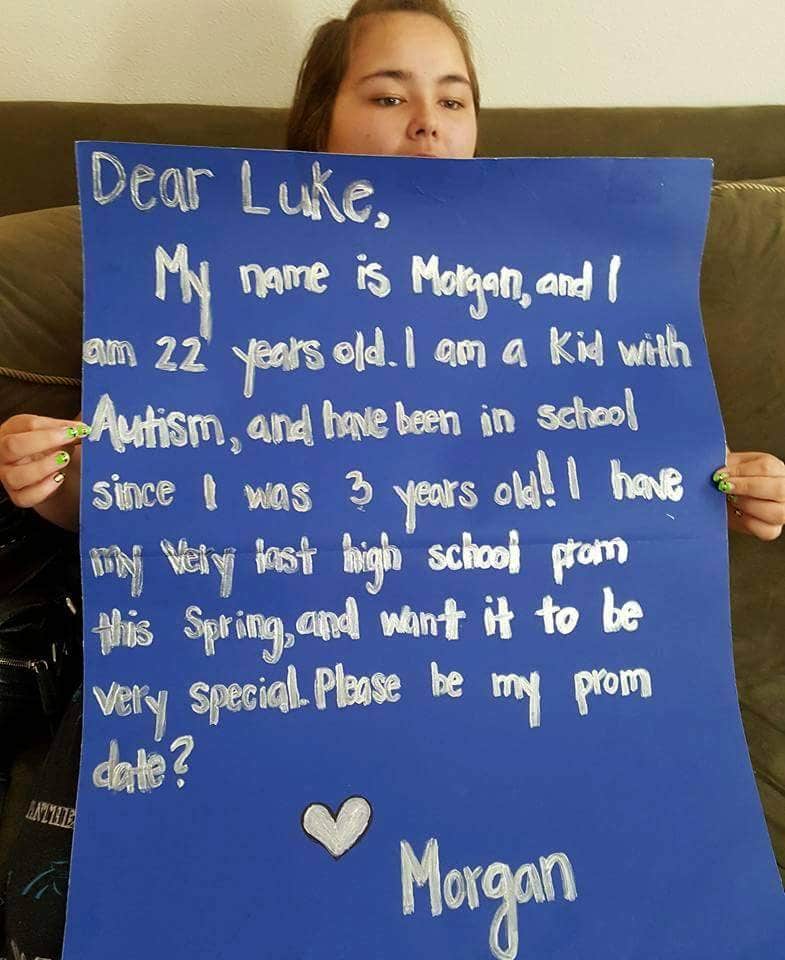 Dear Luke,
My name is Morgan, and I
am 22 years old. I am a kid with
Autism, and have been in school
since I was 3 years old! I have
my very last high school prom
this Spring, and want it to be
very special. Please be my prom
date?
Morgan